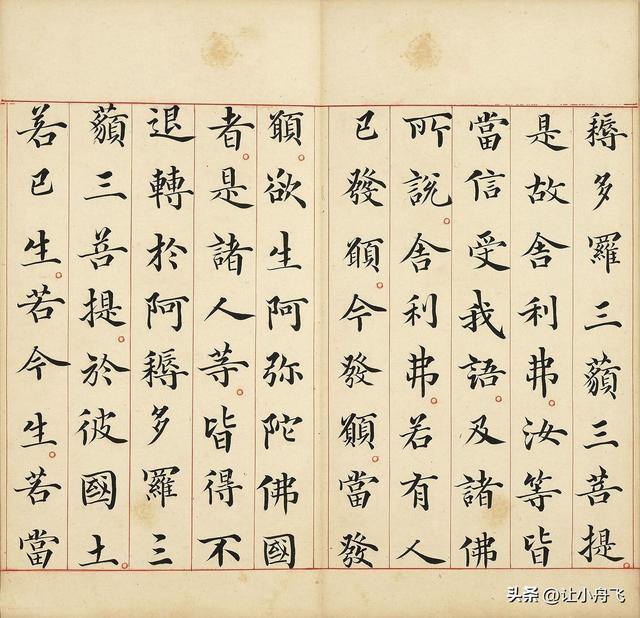 耨多羅三藐三菩提。
是故舍利弗。汝等皆
當信受我語。及諸佛
所說。舍利弗。若有人
已發願。今發願。當發
願欲生阿弥陀佛國
者。是諸人等。皆得不
退轉於阿耨多羅三
藐三菩提。於彼國土。
若已生。若今生。若當
头条 @让小舟飞